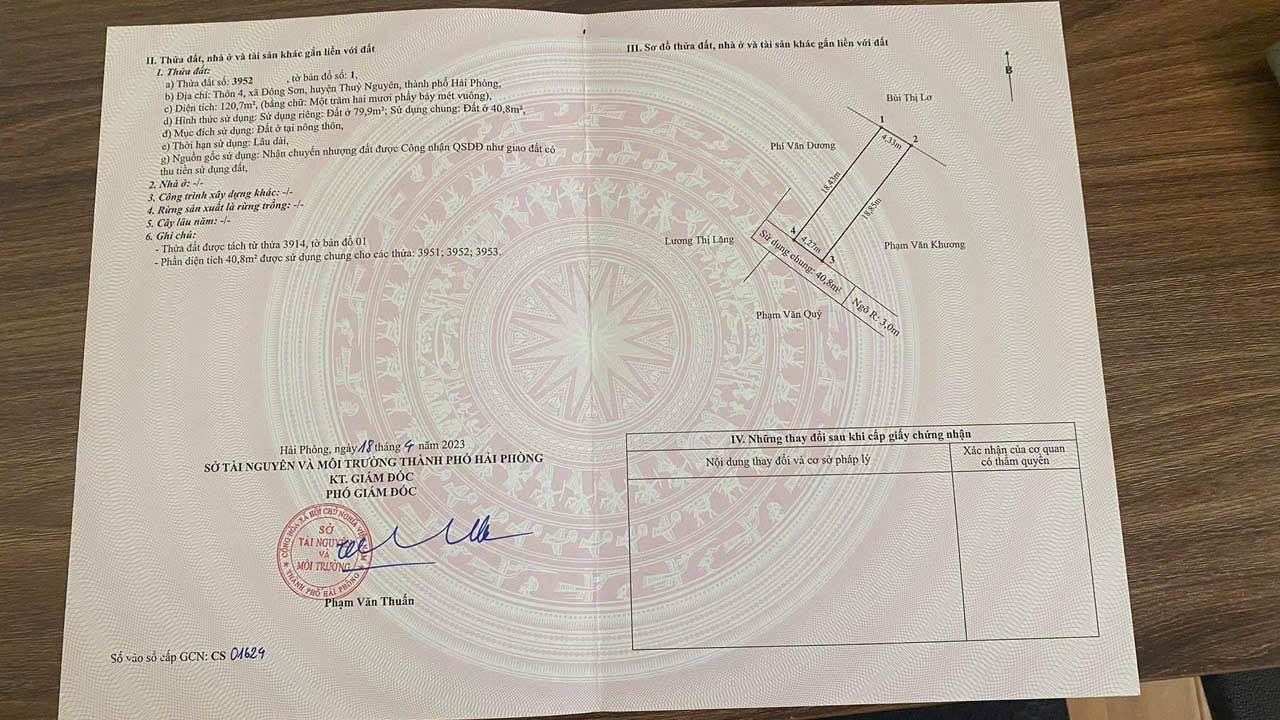 II. Thửa đất, nhà ở và tài sản khác gắn liền với đất
1. Thửa đất:
a) Thửa đất số: 3952 , tờ bản đồ số: 1,
b) Địa chỉ: Thôn 4, xã Đông Sơn, huyện Thuỷ Nguyên, thành phố Hải Phòng,
c) Diện tích: 120,7m², (bằng chữ: Một trăm hai mươi phẩy bảy mét vuông),
d) Hình thức sử dụng: Sử dụng riêng: Đất ở 79,9m²; Sử dụng chung: Đất ở 40,8m²,
đ) Mục đích sử dụng: Đất ở tại nông thôn,
e) Thời hạn sử dụng: Lâu dài,
g) Nguồn gốc sử dụng: Nhận chuyển nhượng đất được Công nhận QSDĐ như giao đất có
thu tiền sử dụng đất,
2. Nhà ở: -/-
3. Công trình xây dựng khác: -/-
4. Rừng sản xuất là rừng trồng: -/-
5. Cây lâu năm: -/-
6. Ghi chú:
- Thửa đất được tách từ thửa 3914, tờ bản đồ 01
- Phần diện tích 40,8m² được sử dụng chung cho các thửa: 3951; 3952; 3953.
Hải Phòng, ngày 18 tháng 4 năm 2023
SỞ TÀI NGUYÊN VÀ MÔI TRƯỜNG THÀNH PHỐ HẢI PHÒNG
KT. GIÁM ĐỐC
PHÓ GIÁM ĐỐC
CỘNG HÒA XÃ HỘI CHỦ NGHĨA VIỆT NAM
SỞ
TÀI NGUYÊN
VÀ
MÔI TRƯỜNG
THÀNH PHỐ HẢI PHÒNG
Phạm Văn Thuấn
Số vào sổ cấp GCN: CS 01624
III. Sơ đồ thửa đất, nhà ở và tài sản khác gắn liền với đất
B
Bùi Thị Lơ
1
2
4,33m
Phí Văn Dương
18,43m
18,85m
Lương Thị Lăng
4
4,27m
3
Phạm Văn Khương
Sử dụng chung: 40,8m²
Ngõ R: 3,0m
Phạm Văn Quý
IV. Những thay đổi sau khi cấp giấy chứng nhận
Nội dung thay đổi và cơ sở pháp lý
Xác nhận của cơ quan
có thẩm quyền